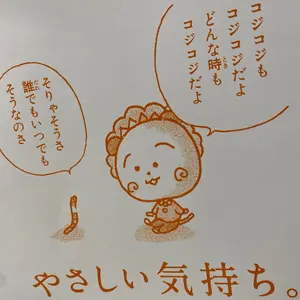 コジコジも
コジコジだよ
どんな時も
コジコジだよ
そりゃそうさ
誰でもいつでも
そうなのさ
やさしい気持ち。